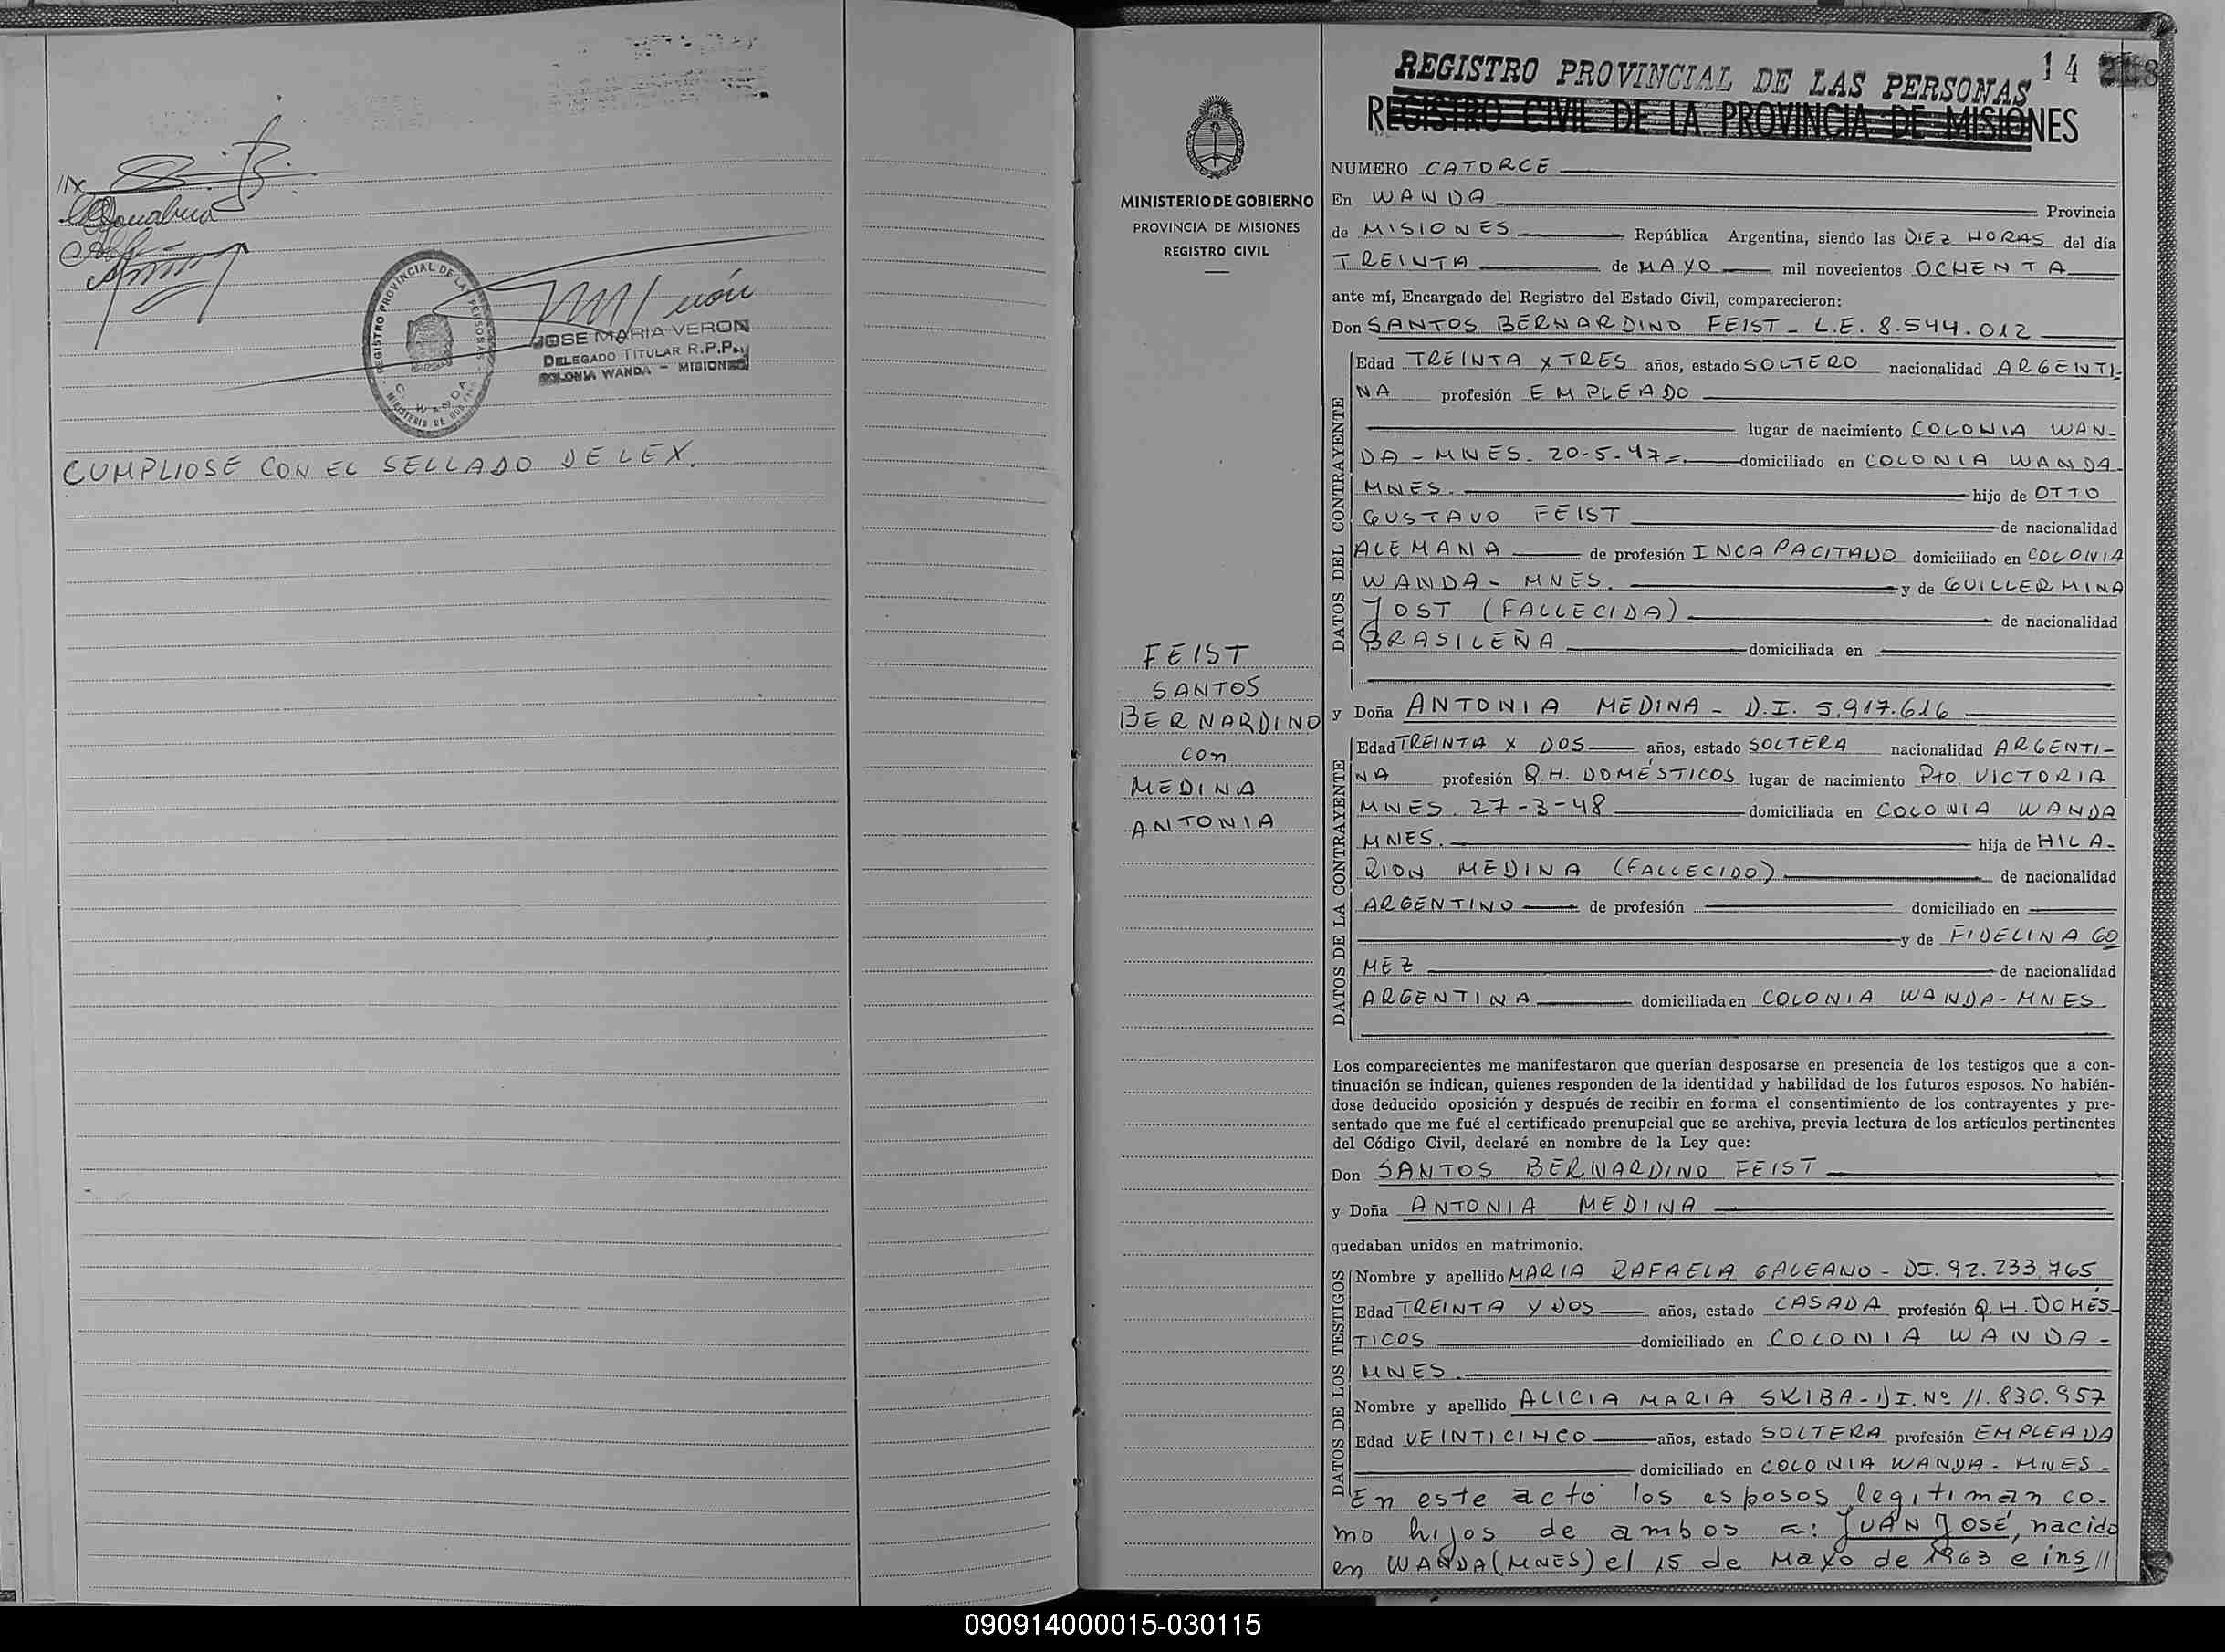 JOSE MARIA VERON
DELEGADO TITULAR R.P.P.
COLONIA WANDA - MISIONES
REGISTRO PROVINCIAL DE LAS PERSONAS
C. WANDA
MINISTERIO DE
CUMPLIOSE CON EL SELLADO DE LEX.
MINISTERIO DE GOBIERNO
PROVINCIA DE MISIONES
REGISTRO CIVIL
FEIST
SANTOS
BERNARDINO
con
MEDINA
ANTONIA
REGISTRO PROVINCIAL DE LAS PERSONAS 14
REGISTRO CIVIL DE LA PROVINCIA DE MISIONES
NUMERO CATORCE
En WANDA Provincia
de MISIONES República Argentina, siendo las DIEZ HORAS del día
TREINTA de MAYO mil novecientos OCHENTA
ante mí, Encargado del Registro del Estado Civil, comparecieron:
Don SANTOS BERNARDINO FEIST - L.E. 8.544.012
DATOS DEL CONTRAYENTE
Edad TREINTA Y TRES años, estado SOLTERO nacionalidad ARGENTI-
NA profesión EMPLEADO
lugar de nacimiento COLONIA WAN-
DA - MNES. 20-5-47=. domiciliado en COLONIA WANDA
MNES. hijo de OTTO
GUSTAVO FEIST de nacionalidad
ALEMANA de profesión INCAPACITADO domiciliado en COLONIA
WANDA - MNES. y de GUILLERMINA
JOST (FALLECIDA) de nacionalidad
BRASILEÑA domiciliada en
y Doña ANTONIA MEDINA - D.I. 5.917.616
DATOS DE LA CONTRAYENTE
Edad TREINTA Y DOS años, estado SOLTERA nacionalidad ARGENTI-
NA profesión Q.H. DOMÉSTICOS lugar de nacimiento Pto. VICTORIA
MNES. 27-3-48 domiciliada en COLONIA WANDA
MNES. hija de HILA-
RION MEDINA (FALLECIDO) de nacionalidad
ARGENTINO de profesión domiciliado en
y de FIDELINA GO
MEZ de nacionalidad
ARGENTINA domiciliada en COLONIA WANDA - MNES
Los comparecientes me manifestaron que querían desposarse en presencia de los testigos que a con-
tinuación se indican, quienes responden de la identidad y habilidad de los futuros esposos. No habién-
dose deducido oposición y después de recibir en forma el consentimiento de los contrayentes y pre-
sentado que me fué el certificado prenupcial que se archiva, previa lectura de los artículos pertinentes
del Código Civil, declaré en nombre de la Ley que:
Don SANTOS BERNARDINO FEIST
y Doña ANTONIA MEDINA
quedaban unidos en matrimonio.
DATOS DE LOS TESTIGOS
Nombre y apellido MARIA RAFAELA GALEANO - DI. 92.233.765
Edad TREINTA Y DOS años, estado CASADA profesión Q.H. DOMÉS-
TICOS domiciliado en COLONIA WANDA -
MNES.
Nombre y apellido ALICIA MARIA SKIBA - DI. Nº 11.830.957
Edad VEINTICINCO años, estado SOLTERA profesión EMPLEADA
domiciliado en COLONIA WANDA - MNES -
En este acto los esposos legitiman co-
mo hijos de ambos a: JUAN JOSÉ, nacido
en WANDA (MNES) el 15 de Mayo de 1963 e ins//
090914000015-030115